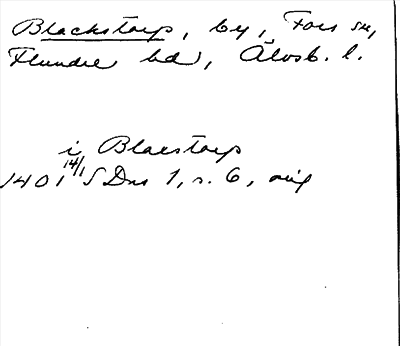 Blackstorp, by, Fors sn,
Flundre hd, Älvsb. l.
i Blacstorp
1401 14/1 SDns 1, s. 6, orig